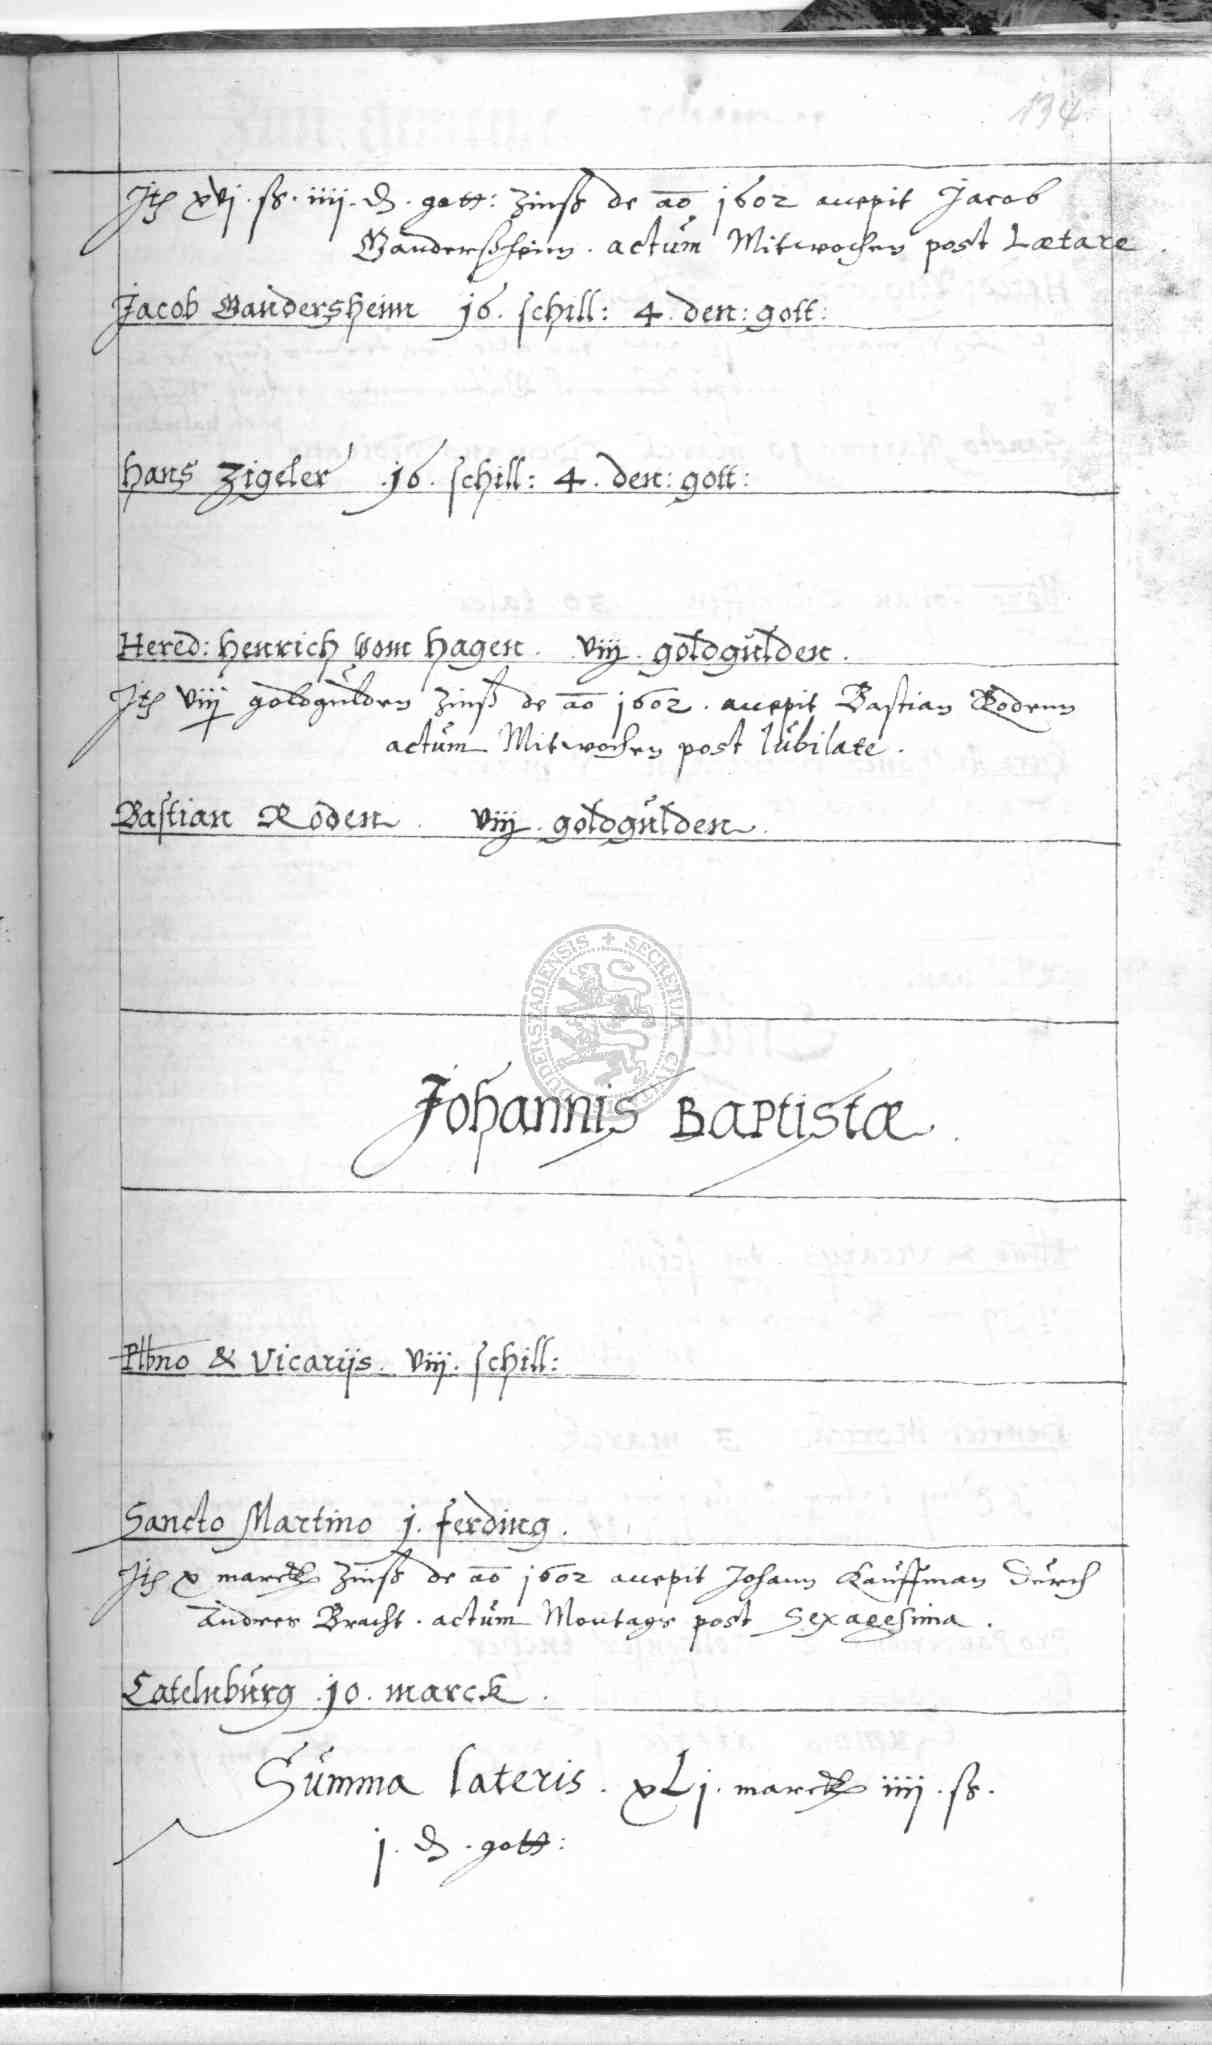 134
Jtz xvj. ß. iiij. d. gott: Zinß de ao 1602 accepit Jacob
Gandersheim. actum Mitwochen post Lætare.
Jacob Gandersheim 16. schill: 4. den: gott:
Hans Zigeler .16. schill: 4. den: gott:
Hered: Henrich vom Hagen. viij. goldgulden.
Jtz viij goldgulden Zinß de ao 1602. accepit Bastian Rodenn
actum Mitwochen post Iubilate.
Bastian Roden. viij. goldgulden.
SECRETUM CIVITATIS DUDERSTADIENSIS
Johannis Baptistæ.
Plbno & Vicarijs. viij. schill:
Sancto Martino j. ferding.
Jtz x marck Zinß de ao 1602 accepit Johann Kauffman durch
Andres Bracht. actum Montags post Sexagesima.
Catelnburg .10. marck.
Summa lateris. xLj. marck iiij. ß.
j. d. gott: